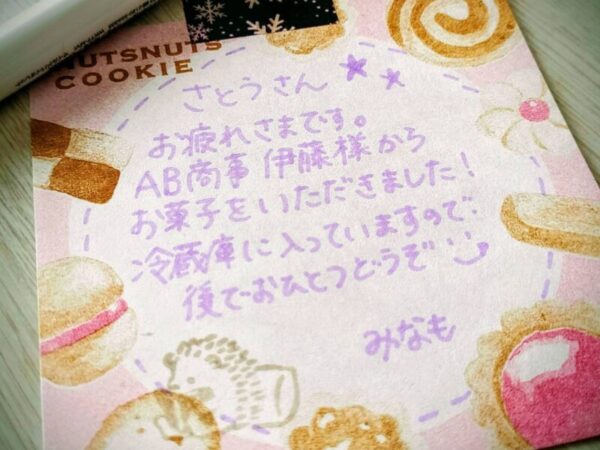 NUTSNUTS
COOKIE
さとうさん
お疲れさまです。
AB商事 伊藤様から
お菓子をいただきました!
冷蔵庫に入っていますので
後でおひとつどうぞ
みなも